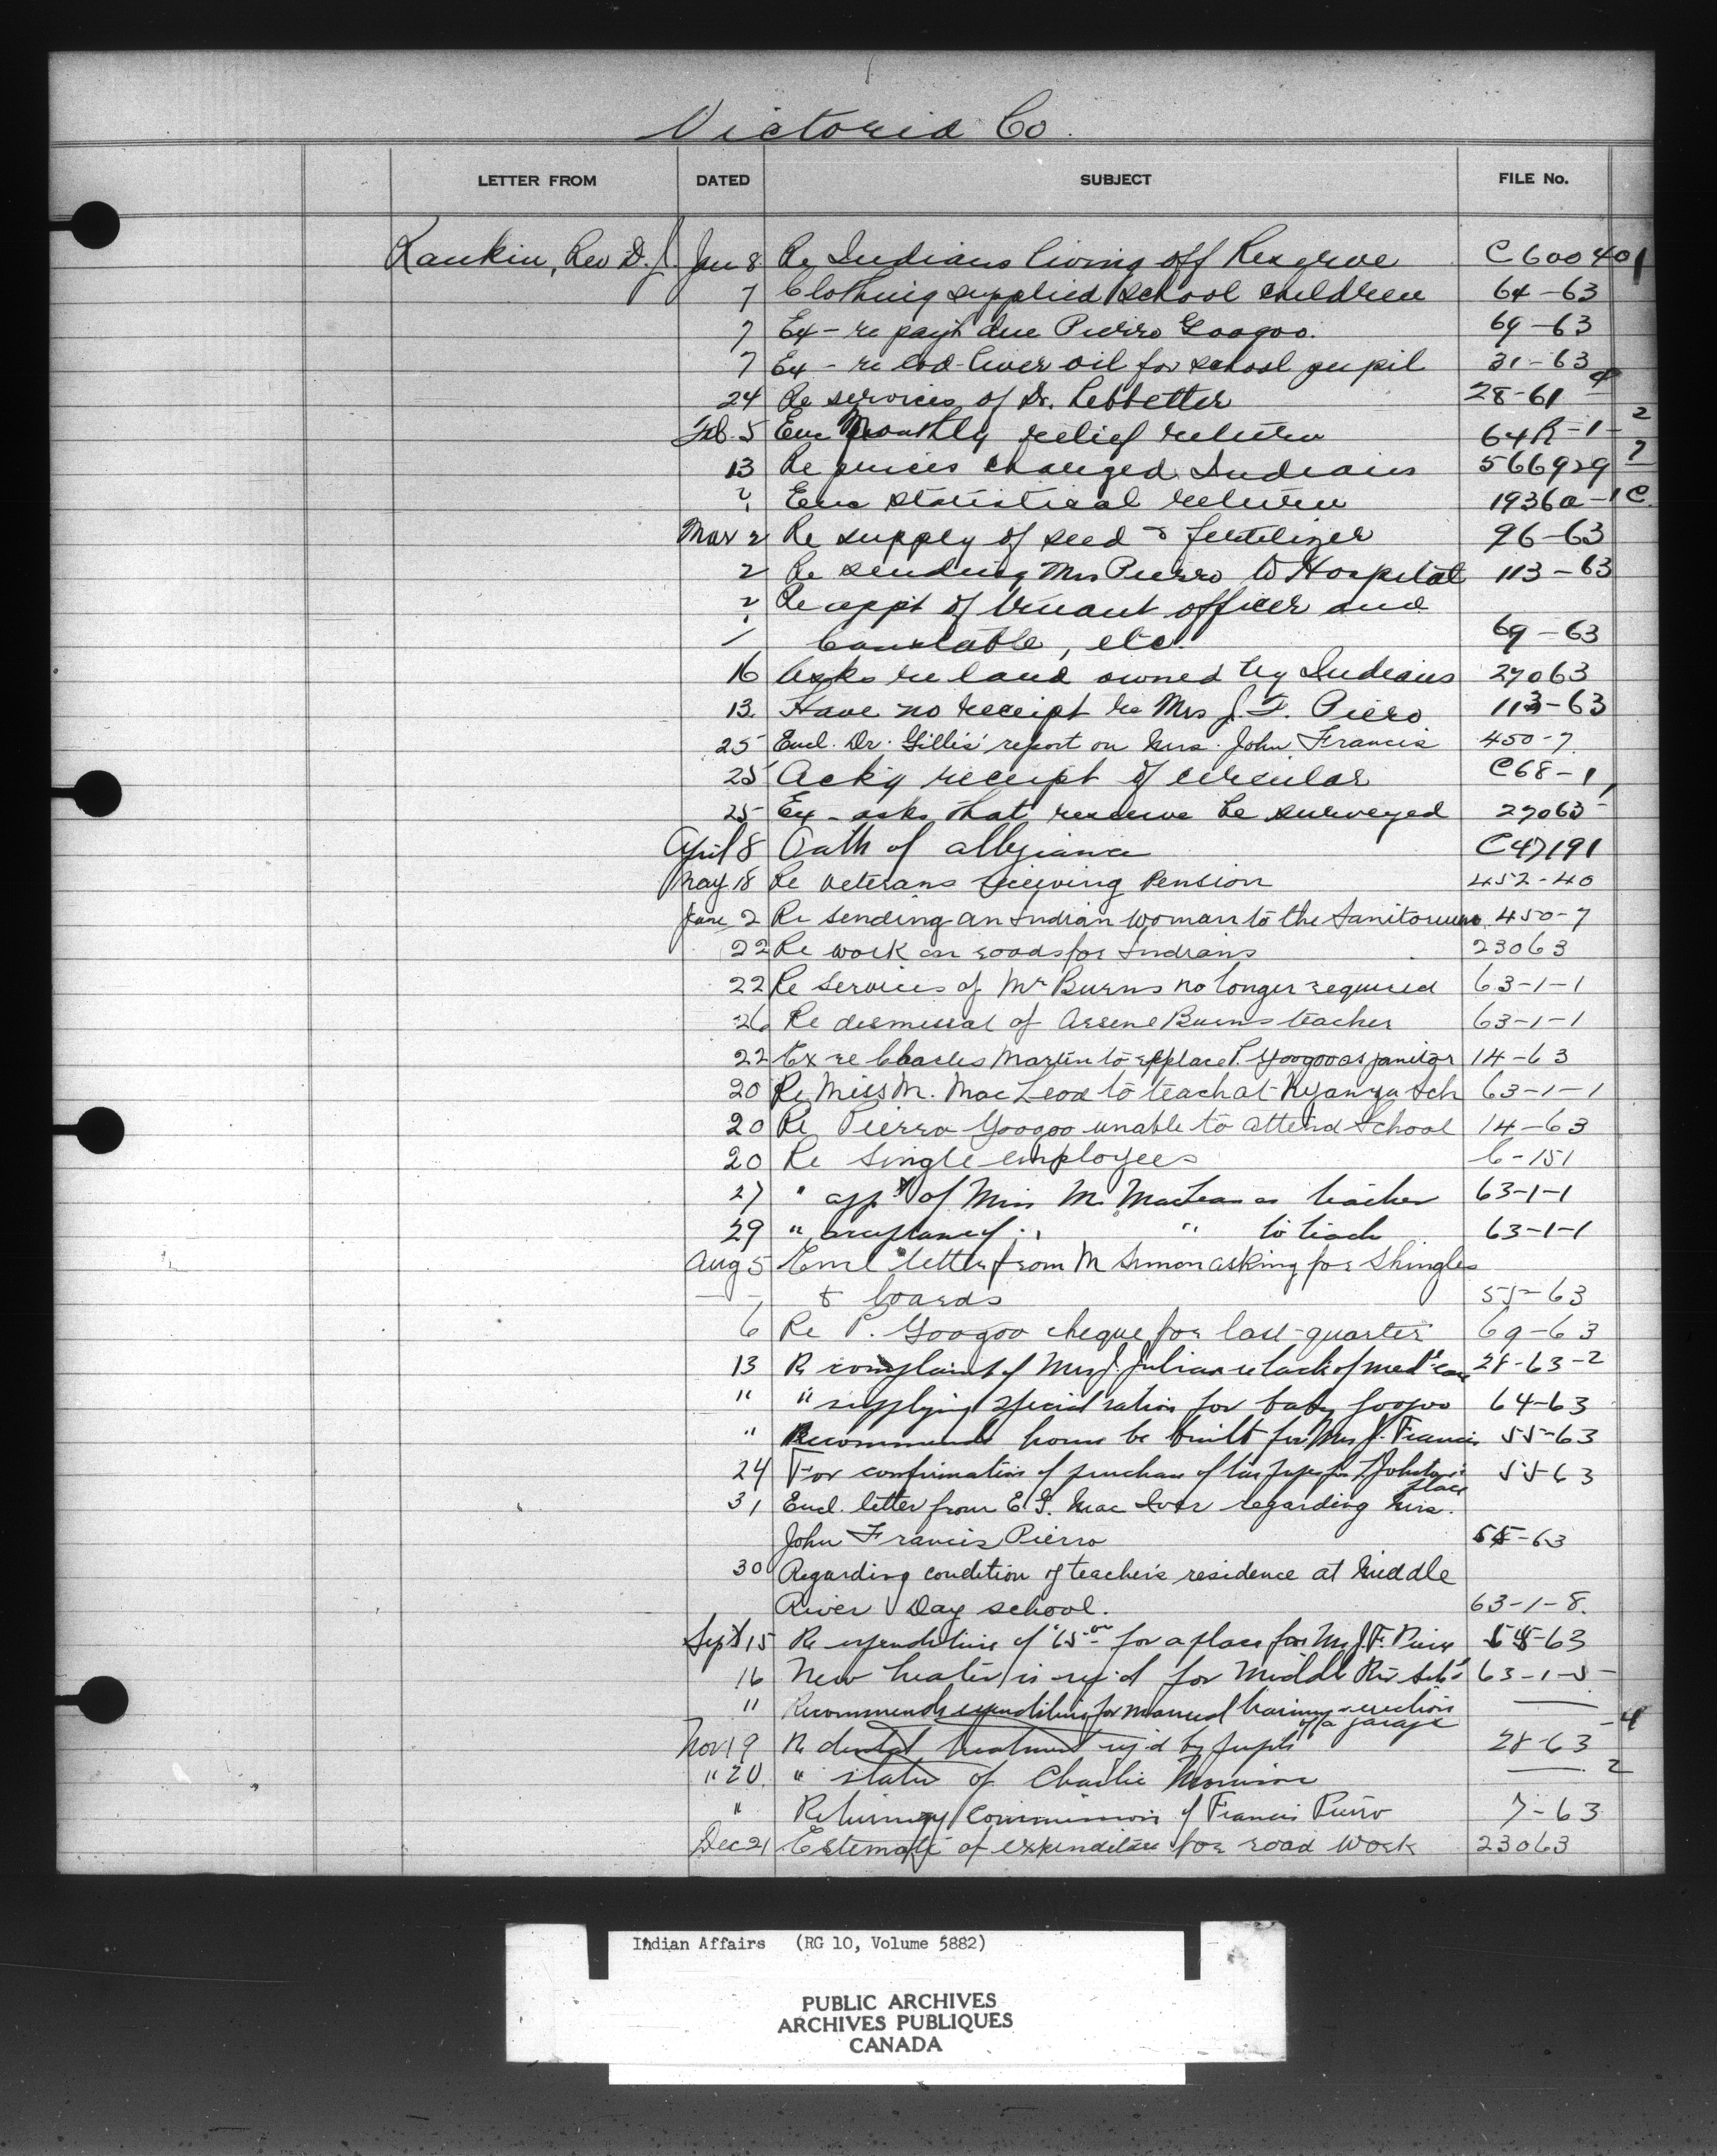 Victoria Co.
LETTER FROM DATED SUBJECT FILE No.
Rankin, Rev D. J. Jan 8 Re Indians living off Reserve C600401
7 Clothing supplied school children 64-63
7 Ex - re pay't due Pierro Googoo. 69-63
7 Ex - re Cod-liver oil for school pupil 31-63
24 Re services of Dr. Lebbetter 28-61-4
Feb. 5 Enc Monthly relief return 64R-1-2
13 Re prices charged Indians 566929
Enc statistical return 1936a-1C
Mar 2 Re supply of seed & fertilizer 96-63
2 Re sending Mrs Pierro to Hospital 113-63
2 Re appt of truant officer and
Constable, etc. 69-63
16 Asks re land owned by Indians 27063
13 Have no receipt re Mrs J. F. Piero 113-63
25 Encl. Dr. Gillis' report on Mrs. John Francis 450-7
25 Ack'g receipt of circular C68-1
25 Ex - asks that reserve be surveyed 27063
April 8 Oath of allegiance C47191
May 18 Re veterans receiving Pension 452-40
June 2 Re sending an Indian woman to the Sanitorium 450-7
22 Re work on roads for Indians 23063
22 Re services of Mr Burns no longer required 63-1-1
26 Re dismissal of Arsene Burns teacher 63-1-1
22 Ex re Charles Martin to replace P. Googoo as janitor 14-63
20 Re Miss M. MacLeod to teach at Nyanza Sch 63-1-1
20 Re Pierro Googoo unable to attend School 14-63
20 Re Single employees 6-151
27 " app't of Miss M. MacLean as teacher 63-1-1
29 " acceptance of " " to teach 63-1-1
Aug 5 Encl letter from M Simon asking for Shingles
& boards 55-63
6 Re P. Googoo cheque for last quarter 69-63
13 Re complaint of Mrs J. Julian re lack of med'l care 28-63-2
" " supplying special ration for baby Googoo 64-63
" Recommends home be built for Mrs J. Francis 55-63
24 For confirmation of purchase of for Johnson's place 55-63
31 Encl. letter from E. G. Mac Iver regarding Mrs.
John Francis Pierro 55-63
30 Regarding condition of teacher's residence at Middle
River Day school. 63-1-8.
Sept 15 Re expenditure of $65.00 for a place for Mrs J. F. Pierro 55-63
16 New heater is req'd for Middle Riv Sch'l 63-1-5
" Recommends expenditure for manual training & erection
of a garage
Nov 19 Re dental treatment req'd by pupils 28-63-4
" 20 " status of Charlie Morrison 2
" Returning Commission of Francis Pierro 7-63
Dec 21 Estimate of expenditure for road work 23063
Indian Affairs (RG 10, Volume 5882)
PUBLIC ARCHIVES
ARCHIVES PUBLIQUES
CANADA